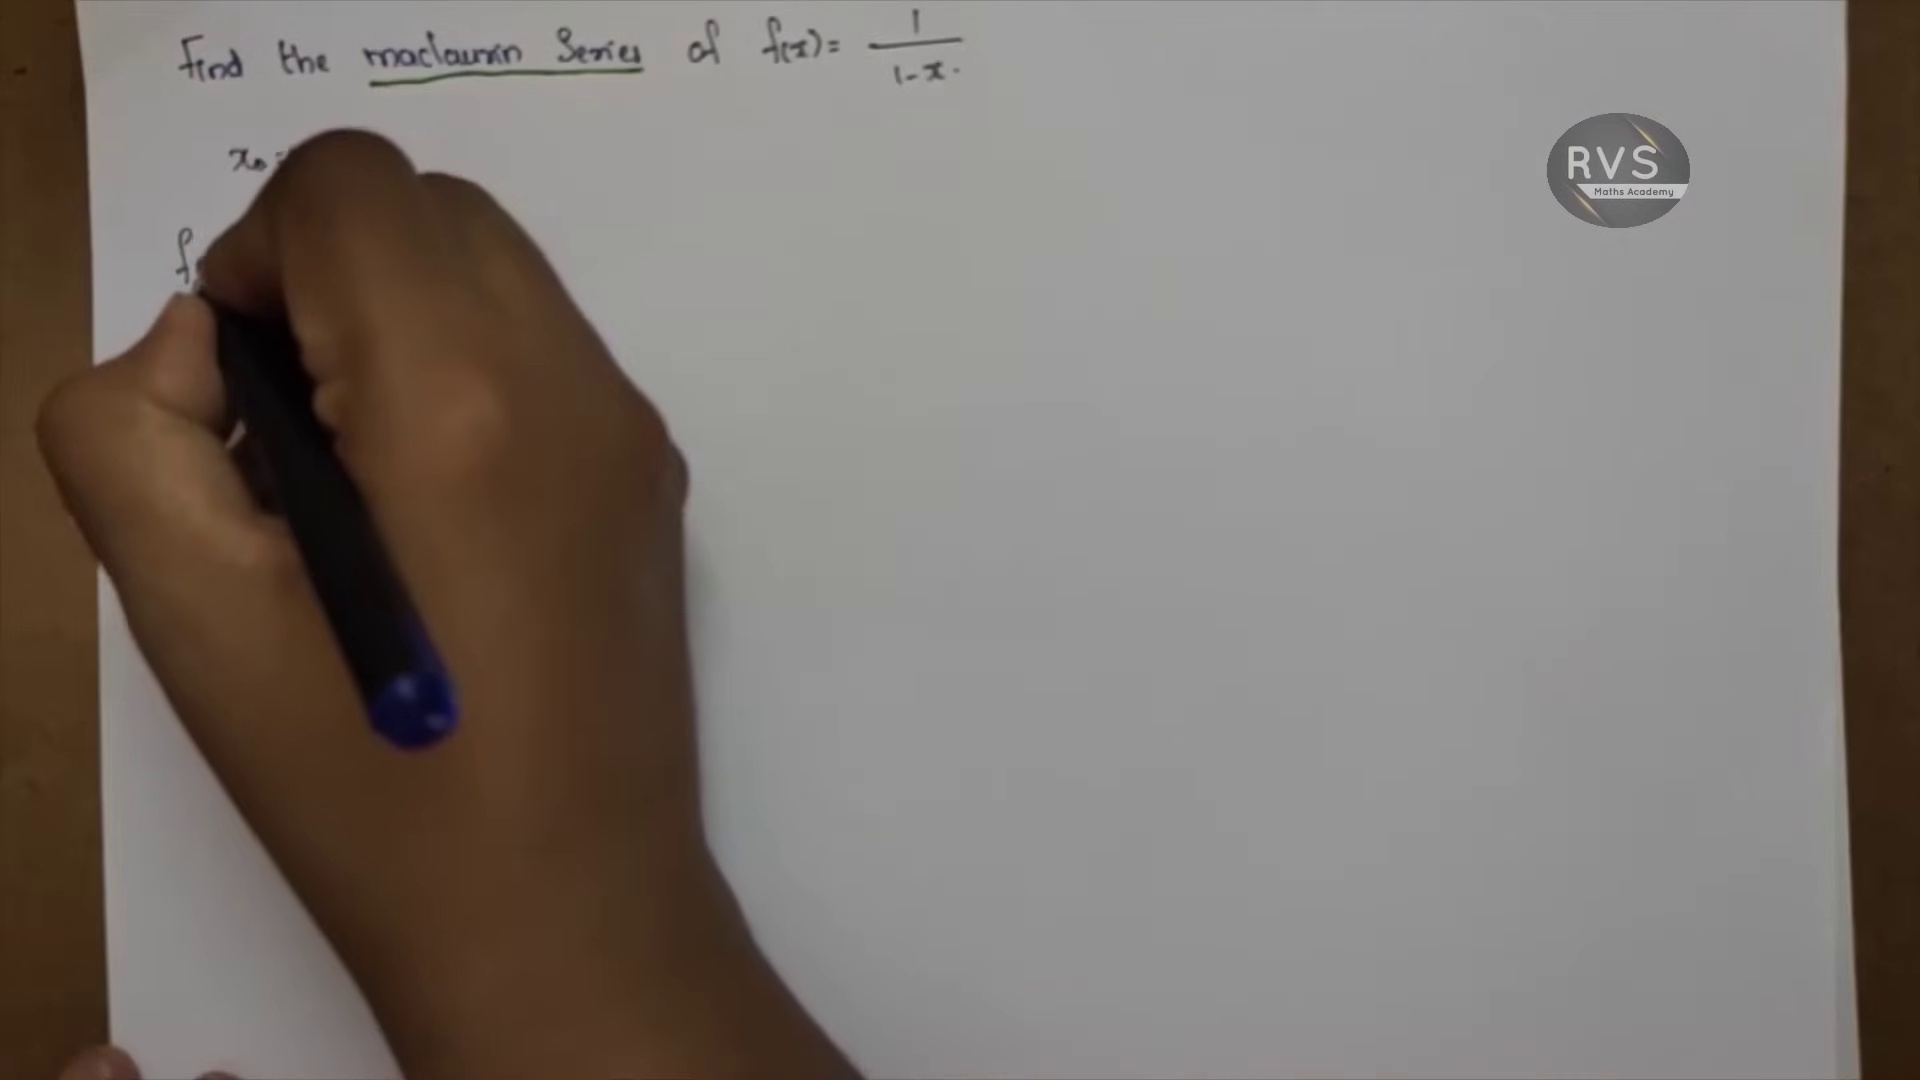 Find the maclaurin Series of f(x) = 1/1-x.
x₀ =
f
RVS
Maths Academy